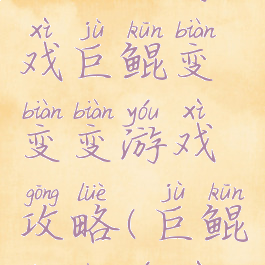 xì jù kūn biàn
戏巨鲲变
biàn biàn yóu xì
变变游戏
gōng lüè jù kūn
攻略(巨鲲